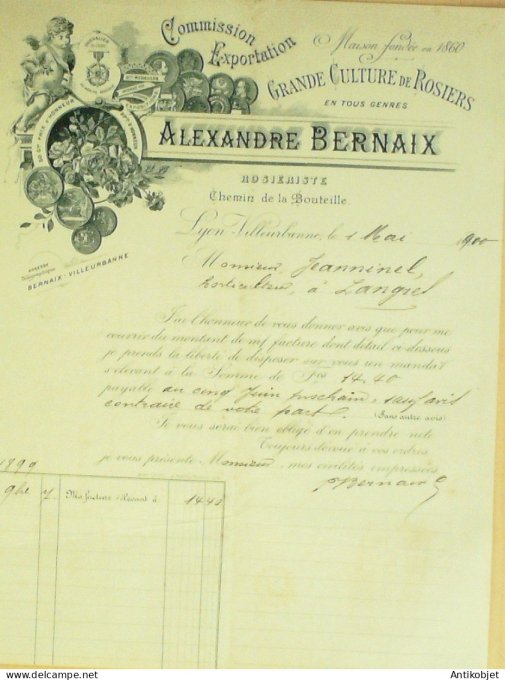 Commission
Exportation
Maison fondée en 1860
GRANDE CULTURE DE ROSIERS
EN TOUS GENRES
ALEXANDRE BERNAIX
ROSIÉRISTE
Chemin de la Bouteille.
ADRESSE
Télégraphique
BERNAIX-VILLEURBANNE
Lyon-Villeurbanne, le 1 Mai 1900
Monsieur Jeanninel,
horticulteur, à Langres
J'ai l'honneur de vous donner avis que pour me
couvrir du montant de ma facture dont détail ci-dessous
je prends la liberté de disposer sur vous un mandat
s'élevant à la Somme de Frs 14,40
payable au cinq Juin prochain, sauf avis
contraire de votre part. (Sans autre avis)
Je vous serai bien obligé d'en prendre note
Toujours dévoué à vos ordres,
je vous présente Monsieur, mes civilités empressées
Bernaix
1899
9bre 7 Ma facture s'élevant à 14 40
www.antikobjet.com
Antikobjet